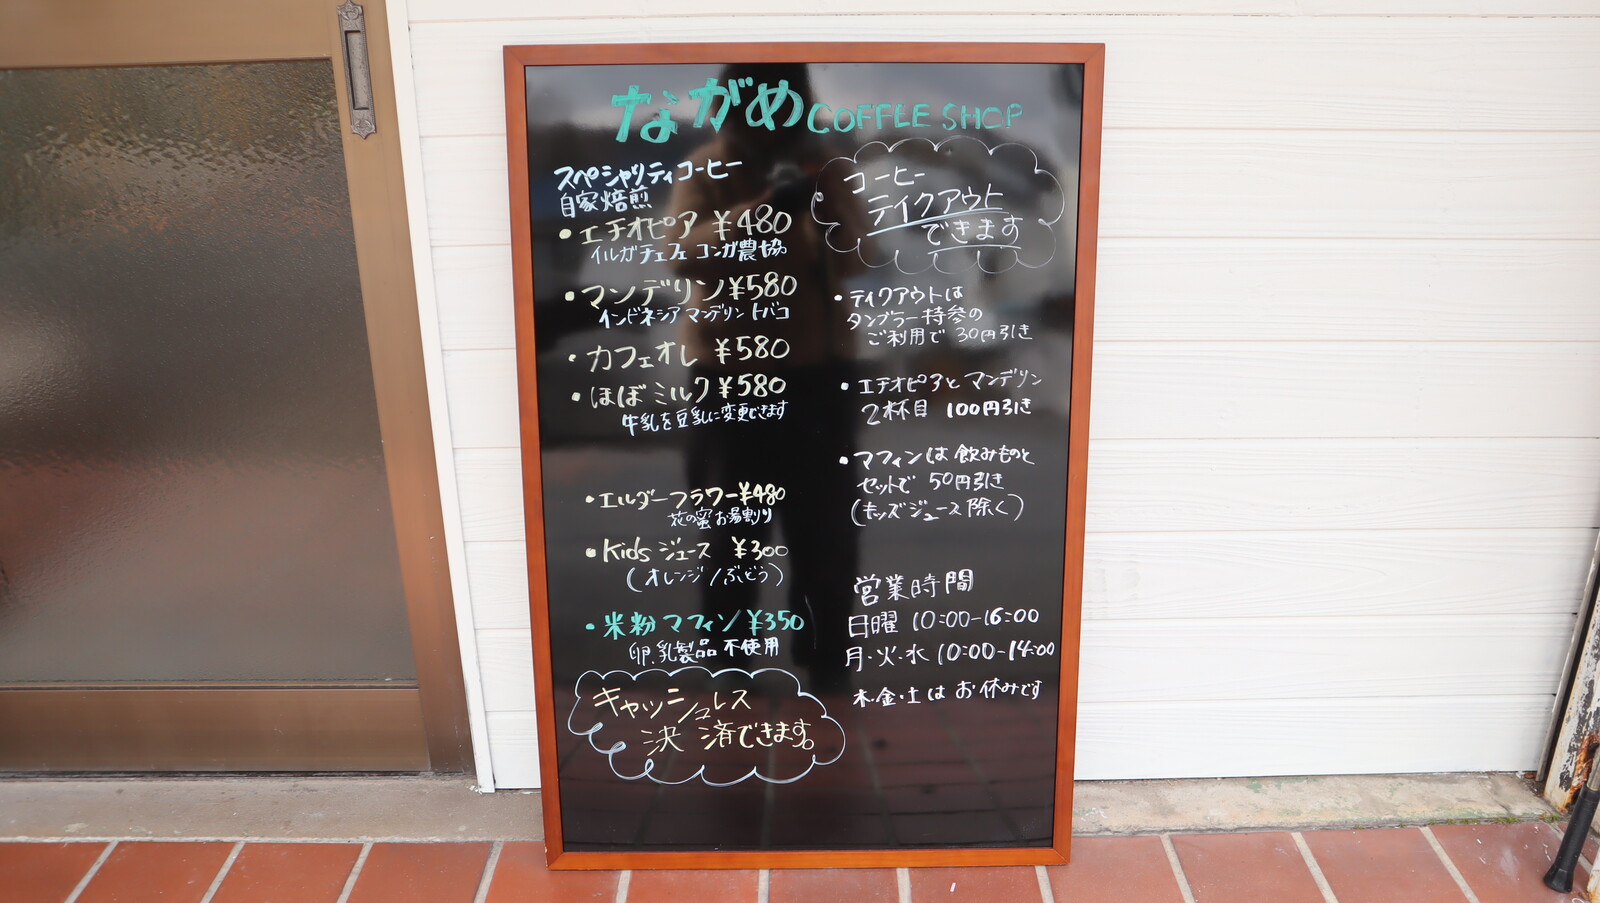 ながめ COFFLE SHOP
スペシャリティコーヒー
自家焙煎
・エチオピア ¥480
イルガチェフェ コンガ農協
・マンデリン ¥580
インドネシア マンデリン トバコ
・カフェオレ ¥580
・ほぼミルク ¥580
牛乳を豆乳に変更できます
・エルダーフラワー ¥480
花の蜜 お湯割り
・Kids ジュース ¥300
(オレンジ/ぶどう)
・米粉マフィン ¥350
卵、乳製品 不使用
キャッシュレス
決済できます。
コーヒー
テイクアウト
できます
・テイクアウトは
タンブラー持参の
ご利用で 30円引き
・エチオピアと マンデリン
2杯目 100円引き
・マフィンは 飲みものと
セットで 50円引き
(キッズジュース除く)
営業時間
日曜 10:00-16:00
月・火・水 10:00-14:00
木・金・土は お休みです